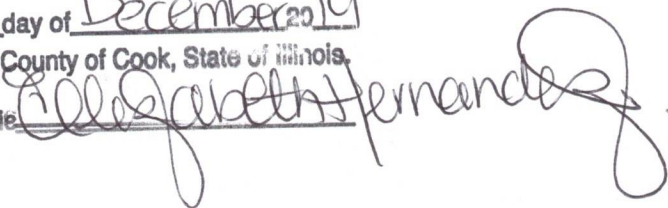 day of December 2019
County of Cook, State of Illinois.
Ellizabeth Hernandez